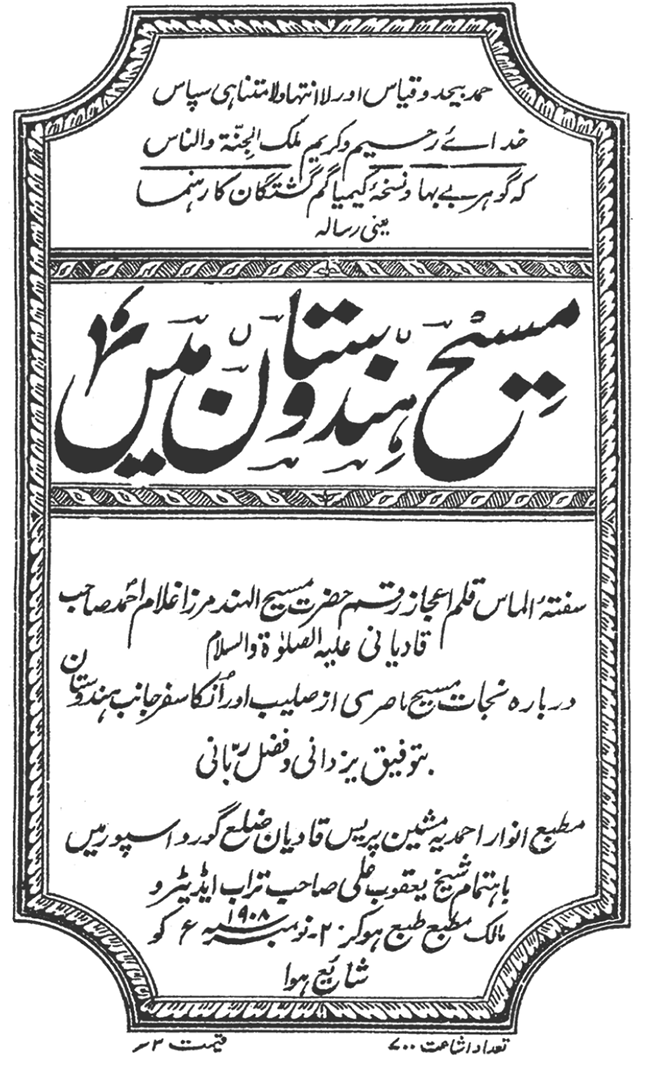 حمد بیحد و قیاس اور لا انتہا و لا متناہی سپاس
خدائے رحیم و کریم ملک الجنّۃ والناس
کہ گوہر بے بہا و نسخۂ کیمیا گم گشتگان کا رہنما
یعنی رسالہ
مسیح ہندوستان میں
سفتۂ الماس قلم اعجاز رقم حضرت مسیح الہند مرزا غلام احمد صاحب
قادیانی علیہ الصلوٰۃ والسلام
دربارہ نجات مسیح ناصری از صلیب اور اُنکا سفر جانب ہندوستان
بتوفیق یزدانی و فضل ربّانی
مطبع انوار احمدیہ مشین پریس قادیان ضلع گورداسپور میں
باہتمام شیخ یعقوب علی صاحب تراب ایڈیٹر و
مالک مطبع طبع ہوکر ۲۰۔ نومبر ۱۹۰۸ء کو
شائع ہوا
تعداد اشاعت ۷۰۰ قیمت ۳